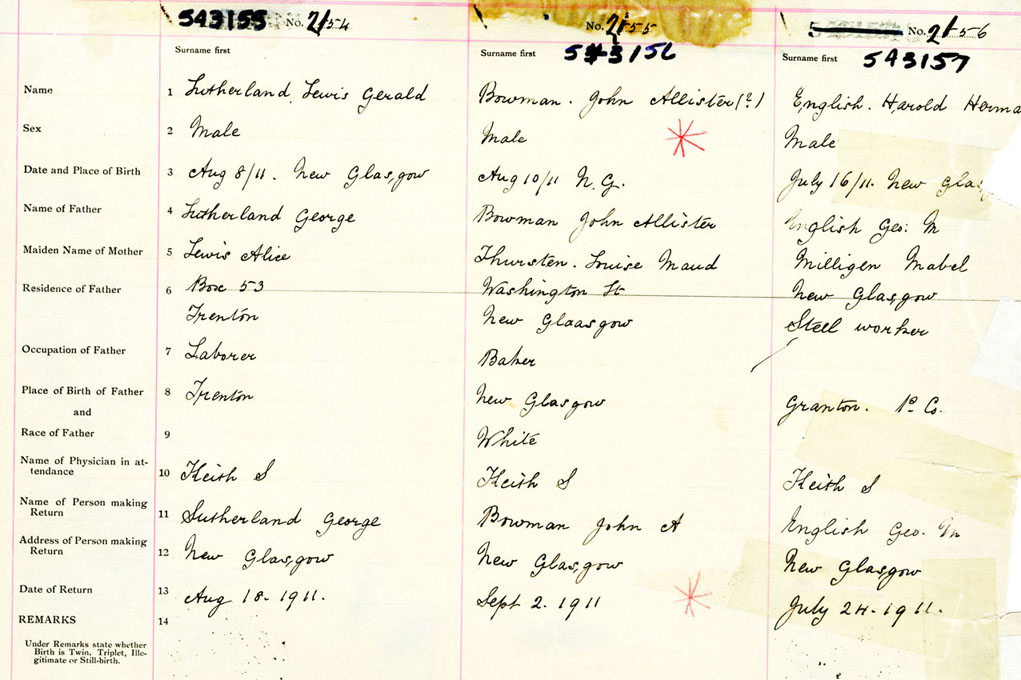 543155 No. 2154 No. 2155 No. 2156
Surname first Surname first 543156 Surname first 543157
Name 1 Sutherland, Lewis Gerald Bowman. John Allister (?) English. Harold Herma
Sex 2 Male Male Male
Date and Place of Birth 3 Aug 8/11. New Glasgow Aug 10/11 N.G. July 16/11. New Glasg
Name of Father 4 Sutherland George Bowman John Allister English Geo: M
Maiden Name of Mother 5 Lewis Alice Thursten. Louise Maud Milligen Mabel
Residence of Father 6 Box 53 Washington St New Glasgow
Trenton New Glaasgow Steel worker
Occupation of Father 7 Laborer Baker
Place of Birth of Father 8 Trenton New Glasgow Granton. Po Co.
and
Race of Father 9 White
Name of Physician in at-
tendance 10 Keith S Keith S Keith S
Name of Person making
Return 11 Sutherland George Bowman John A English Geo. M
Address of Person making
Return 12 New Glasgow New Glasgow New Glasgow
Date of Return 13 Aug 18-1911. Sept 2. 1911 July 24-1911.
REMARKS 14
Under Remarks state whether
Birth is Twin, Triplet, Ille-
gitimate or Still-birth.